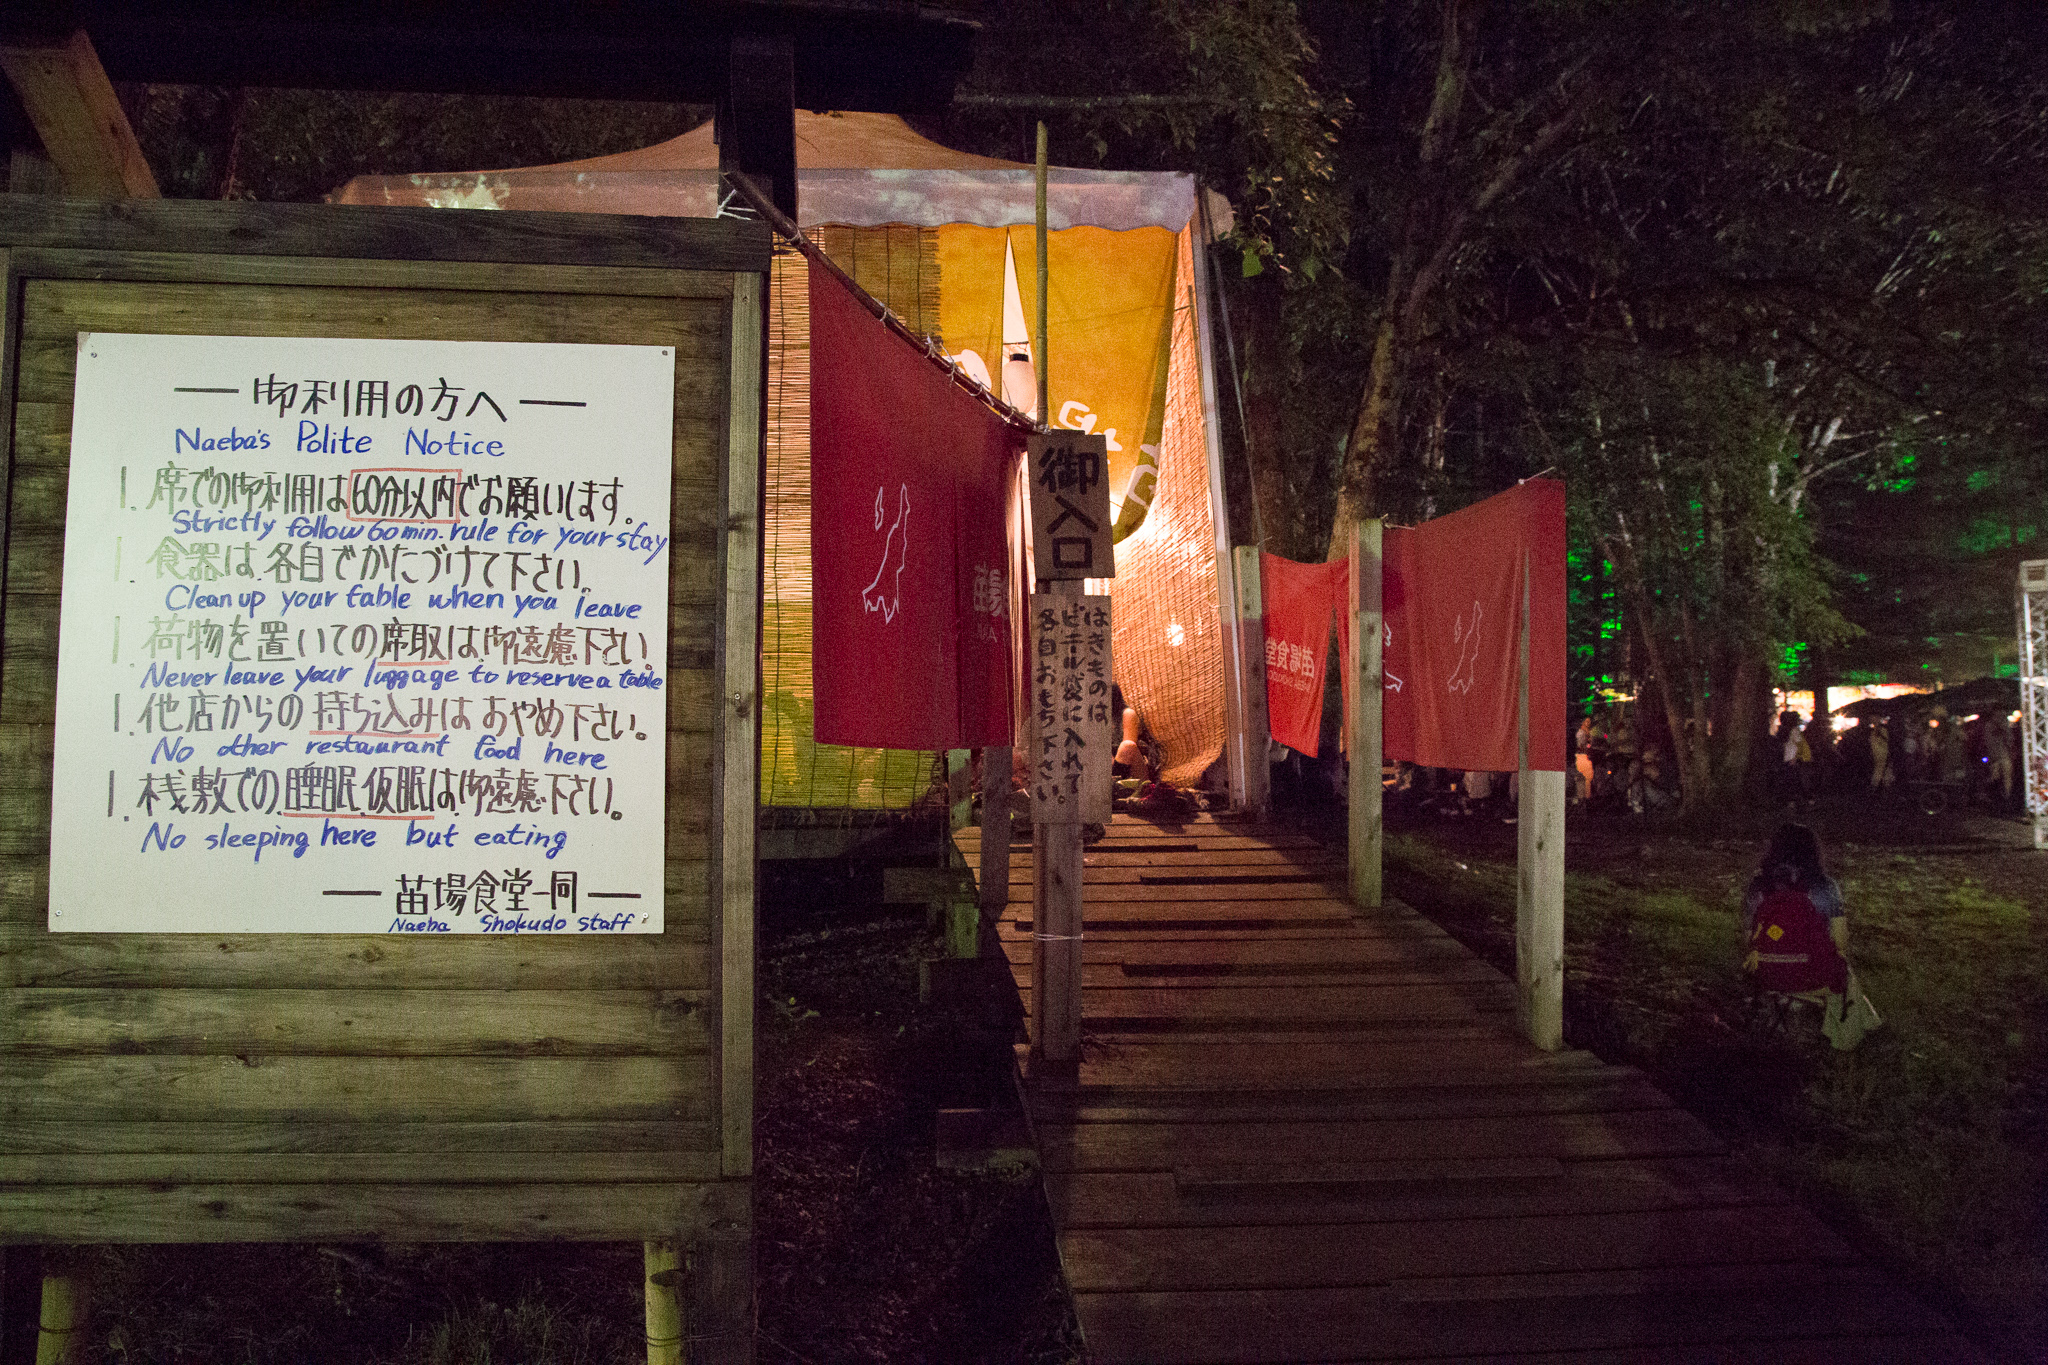 ― 御利用の方へ ―
Naeba's Polite Notice
1. 席での御利用は60分以内でお願いします。
Strictly follow 60 min. rule for your stay
1. 食器は、各自でかたづけて下さい。
Clean up your table when you leave
1. 荷物を置いての席取は、御遠慮下さい。
Never leave your luggage to reserve a table
1. 他店からの持ち込みはおやめ下さい。
No other restaurant food here
1. 桟敷での、睡眠、仮眠は、御遠慮下さい。
No sleeping here but eating
― 苗場食堂一同 ―
Naeba Shokudo staff
御入口
はきものは
ビニール袋に入れて
各自おもち下さい。
苗場食堂